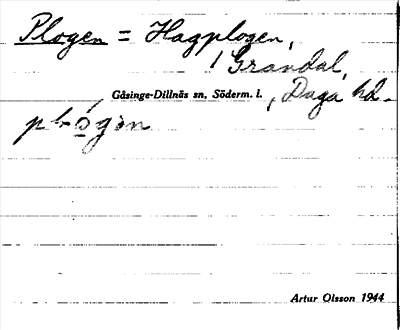 Plogen = Hagplogen,
/ Grandal,
Gåsinge-Dillnäs sn, Söderm. l., Daga hd.
Artur Olsson 1944